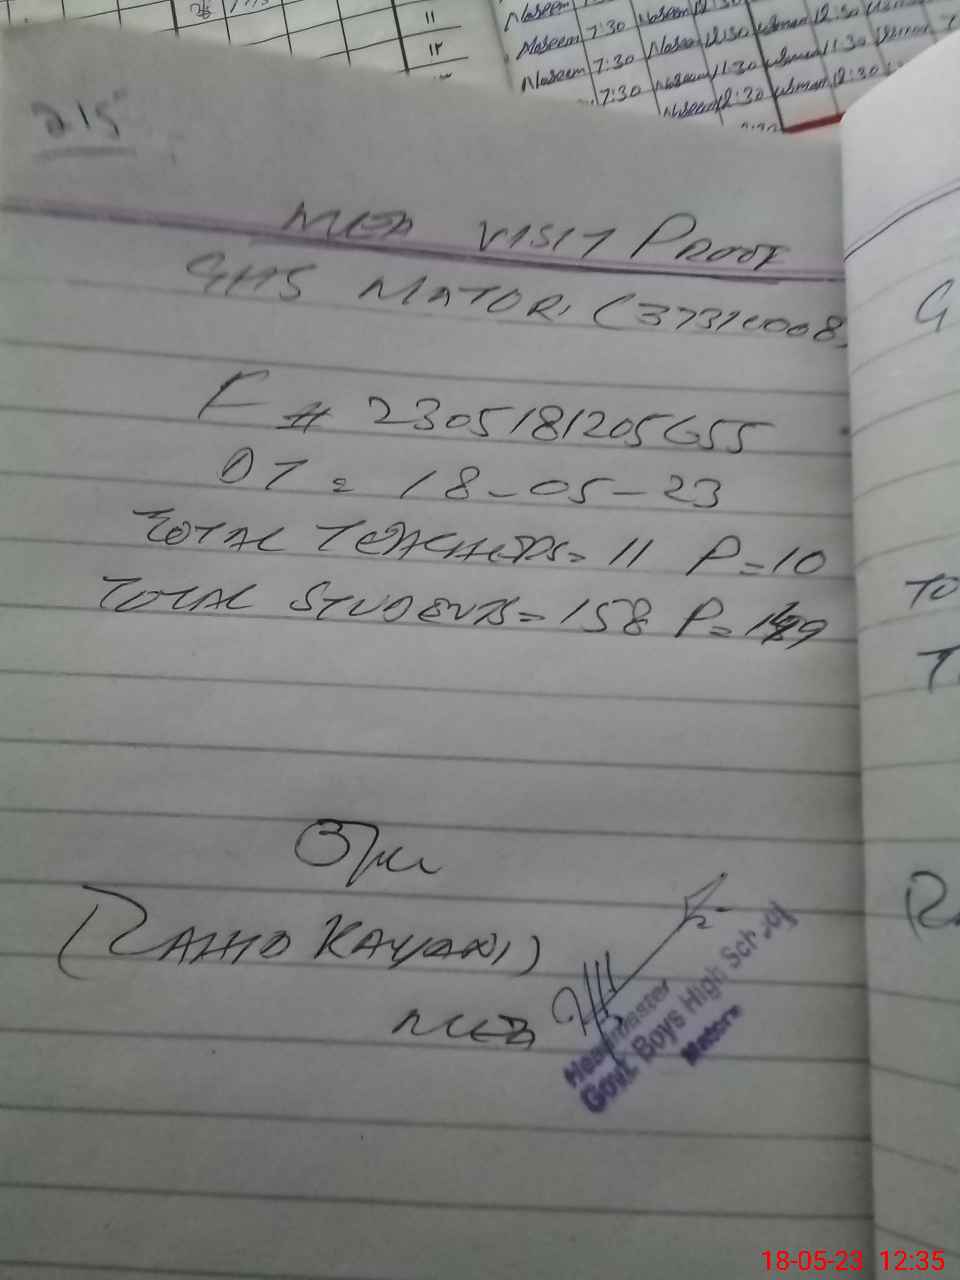 26
11
12
Naseem
Naseem 7:30 Naseem 12:30 usman 12:30
Naseem 7:30 Naseem 11:30 usman 11:30 usman
7:30 Naseem 12:30 usman 12:30
215
MEA VISIT PROOF
GHS MATOR, (37310008)
F # 2305181205655
DT = 18-05-23
TOTAL TEACHERS = 11 P = 10
TOTAL STUDENTS = 158 P = 149
(ZAHID KAYANI)
MEA
Headmaster
Govt. Boys High School
Matore
G
TO
T
18-05-23 12:35